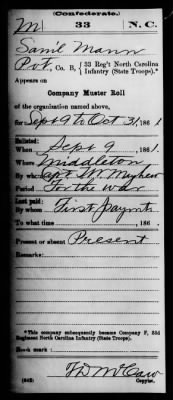 (Confederate.)
M 33 N.C.
Sam'l Mann
Pvt, Co. B, 33 Reg't North Carolina Infantry (State Troops).*
Appears on
Company Muster Roll
of the organization named above,
for Sept 9 to Oct 31, 1861
Enlisted:
When Sept 9, 1861.
Where Middleton
By whom Capt. W. Mayhew
Period For the war
Last paid:
By whom First Paymt
To what time , 186 .
Present or absent Present
Remarks:
*This company subsequently became Company F, 33d
Regiment North Carolina Infantry (State Troops).
Book mark:
(642) Copyist.